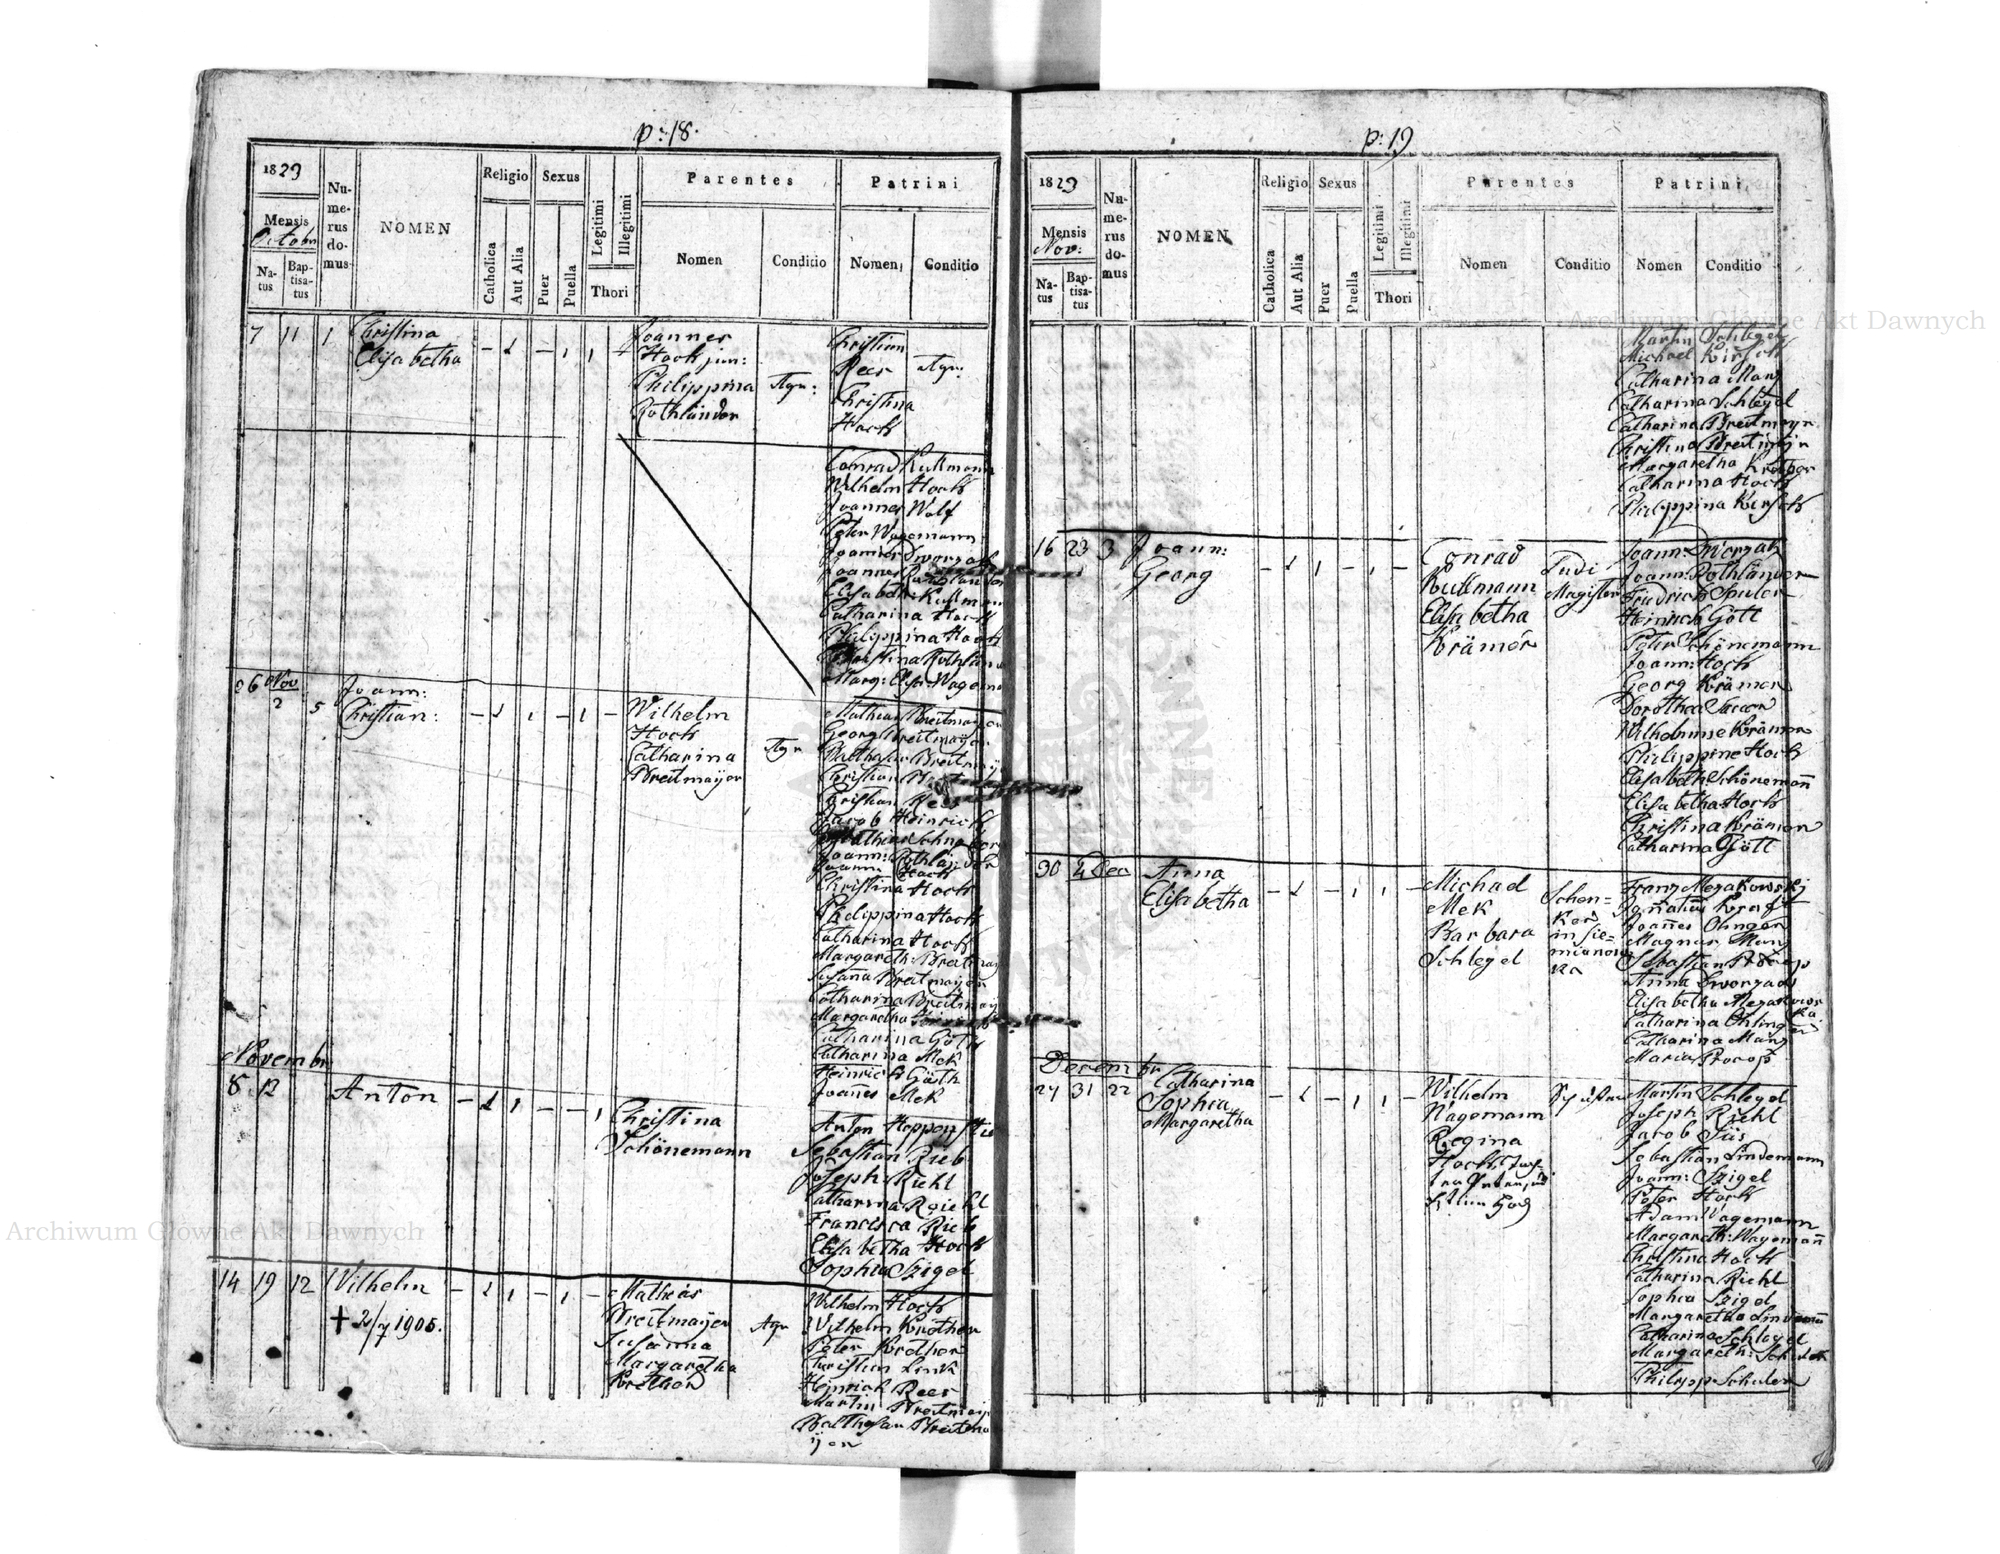 p: 18.
1829
Mensis
Octobr
Na-
tus
Bap-
tisa-
tus
Nu-
me-
rus
do-
mus
NOMEN
Religio
Catholica
Aut Alia
Sexus
Puer
Puella
Legitimi
Illegitimi
Thori
Parentes
Nomen
Conditio
Patrini
Nomen
Conditio
7 11 1 Christina
Elisabetha
Joannes
Hoch jun:
Philippina Agr:
Rothländer
Christian
Rees Agr:
Christina
Hoch
Conrad Kullmann
Wilhelm Hoch
Joannes Wolf
Peter Wagemann
Joannes Dworzak
Joannes
Elisabeth: Kullmann
Catharina Hoch
Philippina Hoch
Christina
Marg: Elis:
Nov
2 5 Joann:
Christian:
Wilhelm
Hoch
Catharina Agr
Breitmayer
Mathias Breitmayer
Georg Breitmayer
Balthasar
Christian
Christian Rees
Jacob Heinrich
Joann:
Christina Hoch
Philippina Hoch
Catharina Hoch
Margareth:
Susana Breitmayer
Catharina
Margaretha
Catharina Göth
Catharina Mek
Heinrich Göth
Joañes Mek
Novembr
8 12 Anton
Christina
Schönemann
Anton
Sebastian Rieb
Joseph Riehl
Catharina Riehl
Francisca Rieb
Elisabetha Hoch
Sophia Szigel
14 19 12 Wilhelm
† 2/7 1905.
Mathias
Breitmayer Agr
Susanna
Margaretha
Krether
Wilhelm Hoch
Wilhelm Krether
Peter Krether
Christian Link
Heinrich Rees
Martin
Balthasar
yer
p: 19
1829
Mensis
Nov:
Na-
tus
Bap-
tisa-
tus
Nu-
me-
rus
do-
mus
NOMEN
Religio
Catholica
Aut Alia
Sexus
Puer
Puella
Legitimi
Illegitimi
Thori
Parentes
Nomen
Conditio
Patrini
Nomen
Conditio
Martin Schlegel
Michael Kirsch
Catharina Mang
Catharina Schlegel
Catharina
Christina
Margaretha
Catharina Hoch
Philippina Kirsch
16 23 3 Joann:
Georg
Conrad Ludi
Kullmann Magister
Elisabetha
Krämer
Joann: Dworzak
Joann: Rothländer
Friedrich
Heinrich Gött
Peter Schönemann
Joann: Hoch
Georg Krämer
Dorothea
Wilhelmine Krämer
Philippine Hoch
Elisabeth: Schönemañ
Elisabetha Hoch
Christina Krämer
Catharina Gött
30 4 Dec Anna
Elisabetha
Michael
Mek
Barbara
Schlegel
Schen=
ker
in Sie=
mianow
ka
Franz
Ignatius Kraft
Joañes Olinger
Magnus Mang
Sebastian Prokop
Anna Dworzak
Elisabetha
Catharina
Catharina Mang
Maria Procop
Decembr
27 31 22 Catharina
Sophia
Margaretha
Wilhelm
Wagemann
Regina
Hoch
Martin Schlegel
Joseph Riehl
Jacob
Sebastian Lindemann
Joann: Szigel
Peter Hoch
Adam Wagemann
Margareth: Wagemañ
Christina Hoch
Catharina Riehl
Sophia Szigel
Margaretha
Catharina Schlegel
Margareth:
Philipp Schuler
Archiwum Główne Akt Dawnych
Archiwum Główne Akt Dawnych